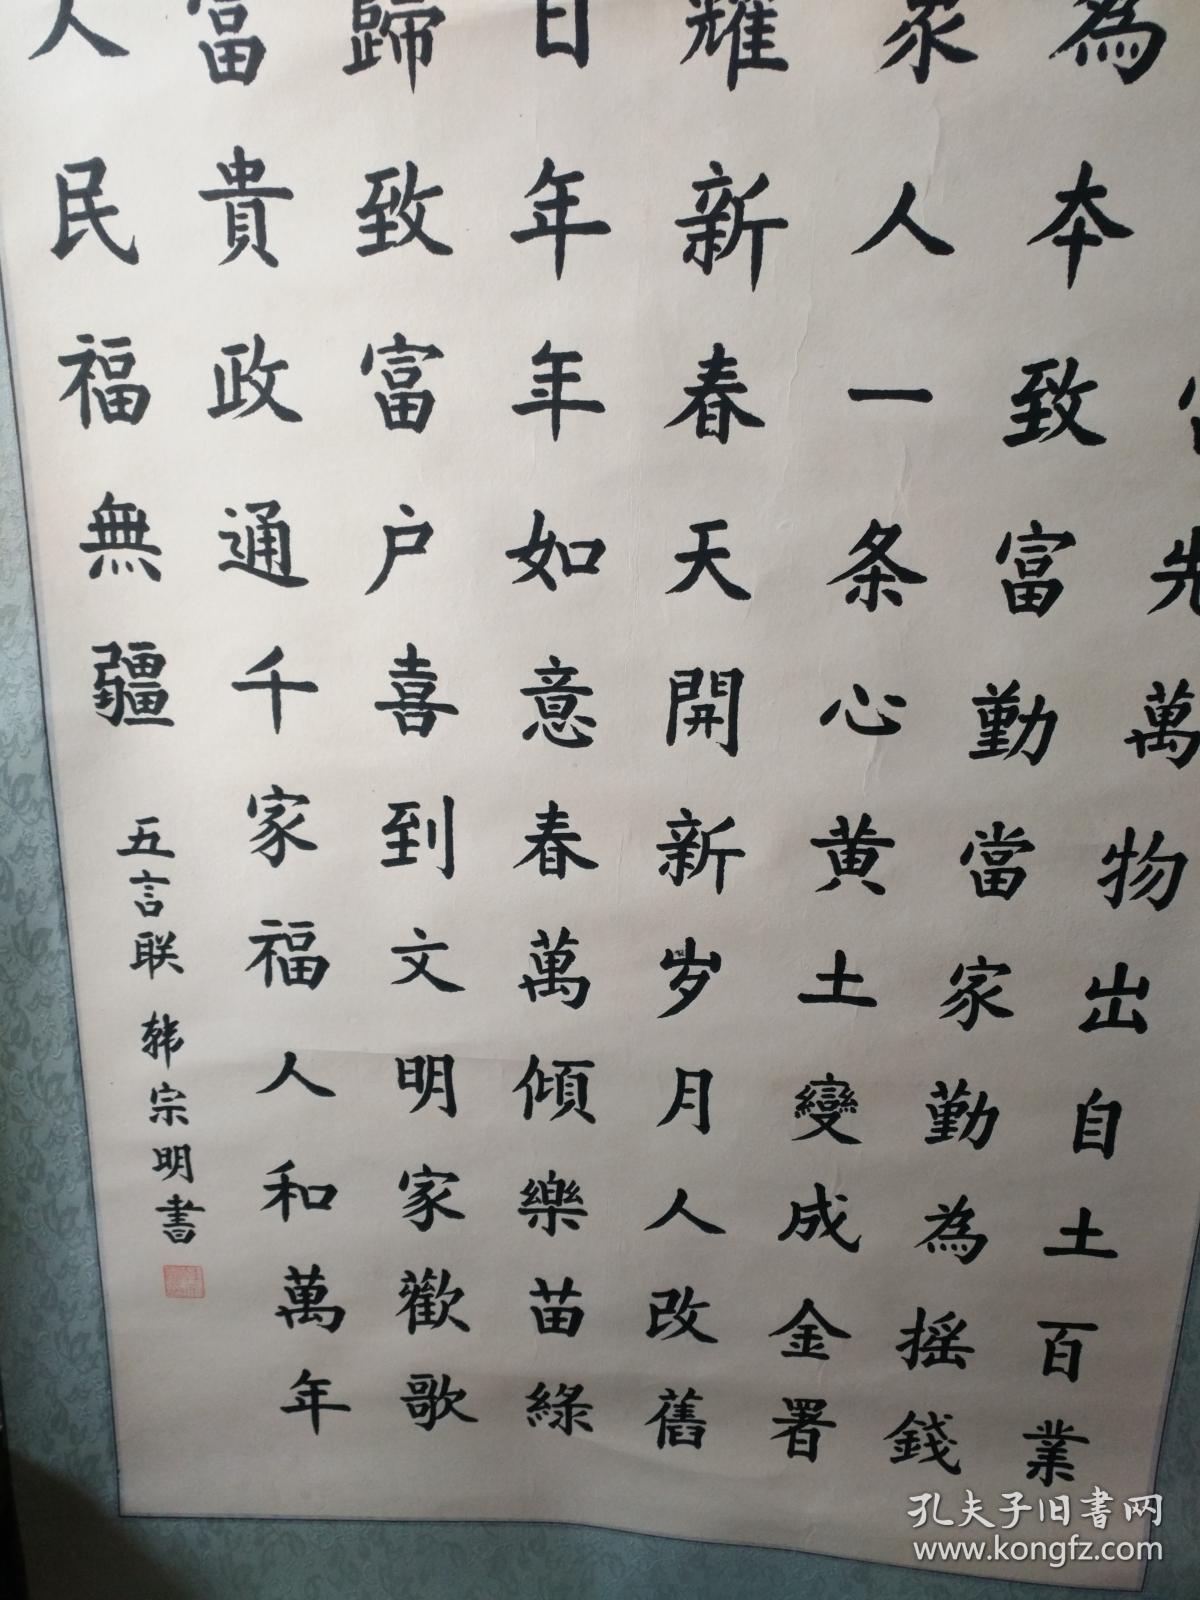 先萬物出自土百業
為本致富勤當家勤為摇錢
家人一条心黄土變成金署
耀新春天開新岁月人改舊
日年年如意春萬傾樂苗綠
歸致富户喜到文明家歡歌
富貴政通千家福人和萬年
人民福無疆
五言联 韩宗明書
孔夫子旧书网
www.kongfz.com